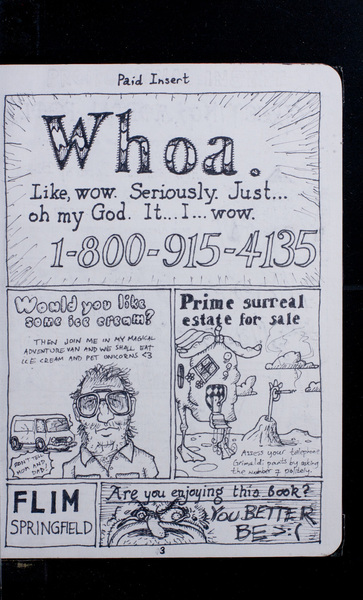 Paid Insert
Whoa.
Like, wow. Seriously. Just...
oh my God. It... I... wow.
1-800-915-4135
Would you like
some ice cream?
THEN JOIN ME IN MY MAGICAL
ADVENTURE VAN AND WE SHALL EAT
ICE CREAM AND PET UNICORNS <3
DON'T TELL
MOM AND
DAD!
Prime surreal
estate for sale
Assess your telephone
Grimaldi pants by asking
the number 7 politely.
FLIM
SPRINGFIELD
Are you enjoying this book?
YOU BETTER
BE >:(
3